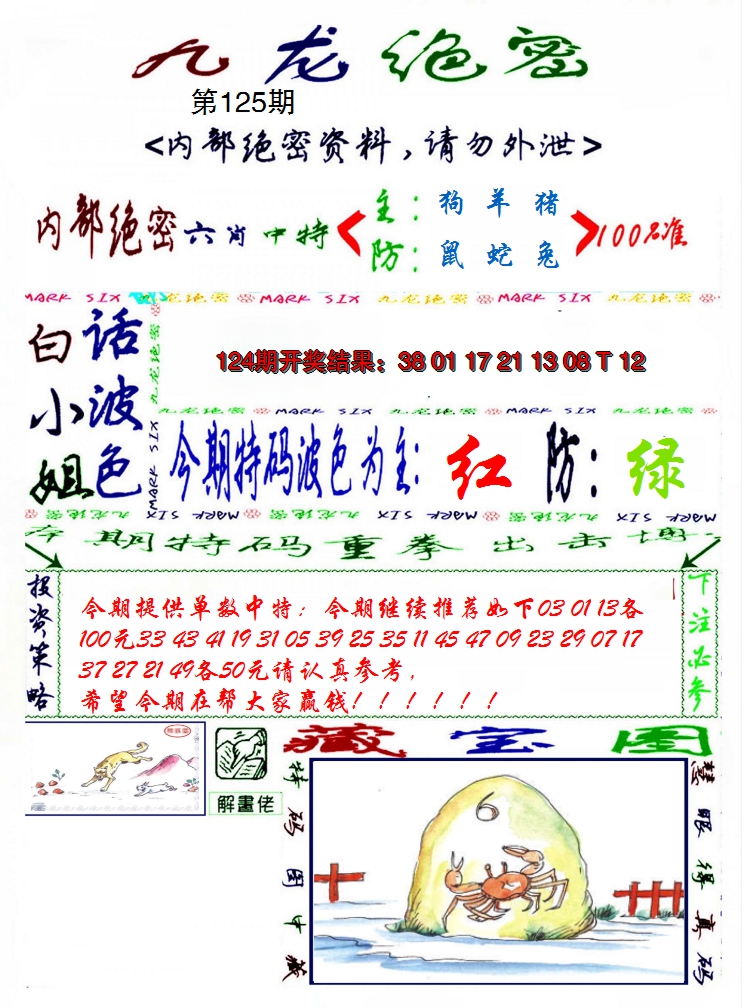 九龙绝密
第125期
<内部绝密资料,请勿外泄>
内部绝密六肖中特
主：狗 羊 猪
防：鼠 蛇 兔
100%准
MARK SIX 九龙绝密 MARK SIX 九龙绝密 MARK SIX 九龙绝密
白小姐
话波色
九龙绝密
MARK SIX
124期开奖结果：38 01 17 21 13 08 T 12
九龙绝密 MARK SIX 九龙绝密 MARK SIX 九龙绝密
今期特码波色为主: 红 防: 绿
MARK SIX 九龙绝密 MARK SIX 九龙绝密 MARK SIX
本期特码重拳出击博
投资策略
今期提供单数中特；今期继续推荐如下03 01 13各
100元33 43 41 19 31 05 39 25 35 11 45 47 09 23 29 07 17
37 27 21 49各50元请认真参考,
希望今期在帮大家赢钱！！！！！！
下注必参
解畫佬
藏宝图
特码图中藏
6
慧眼得真码